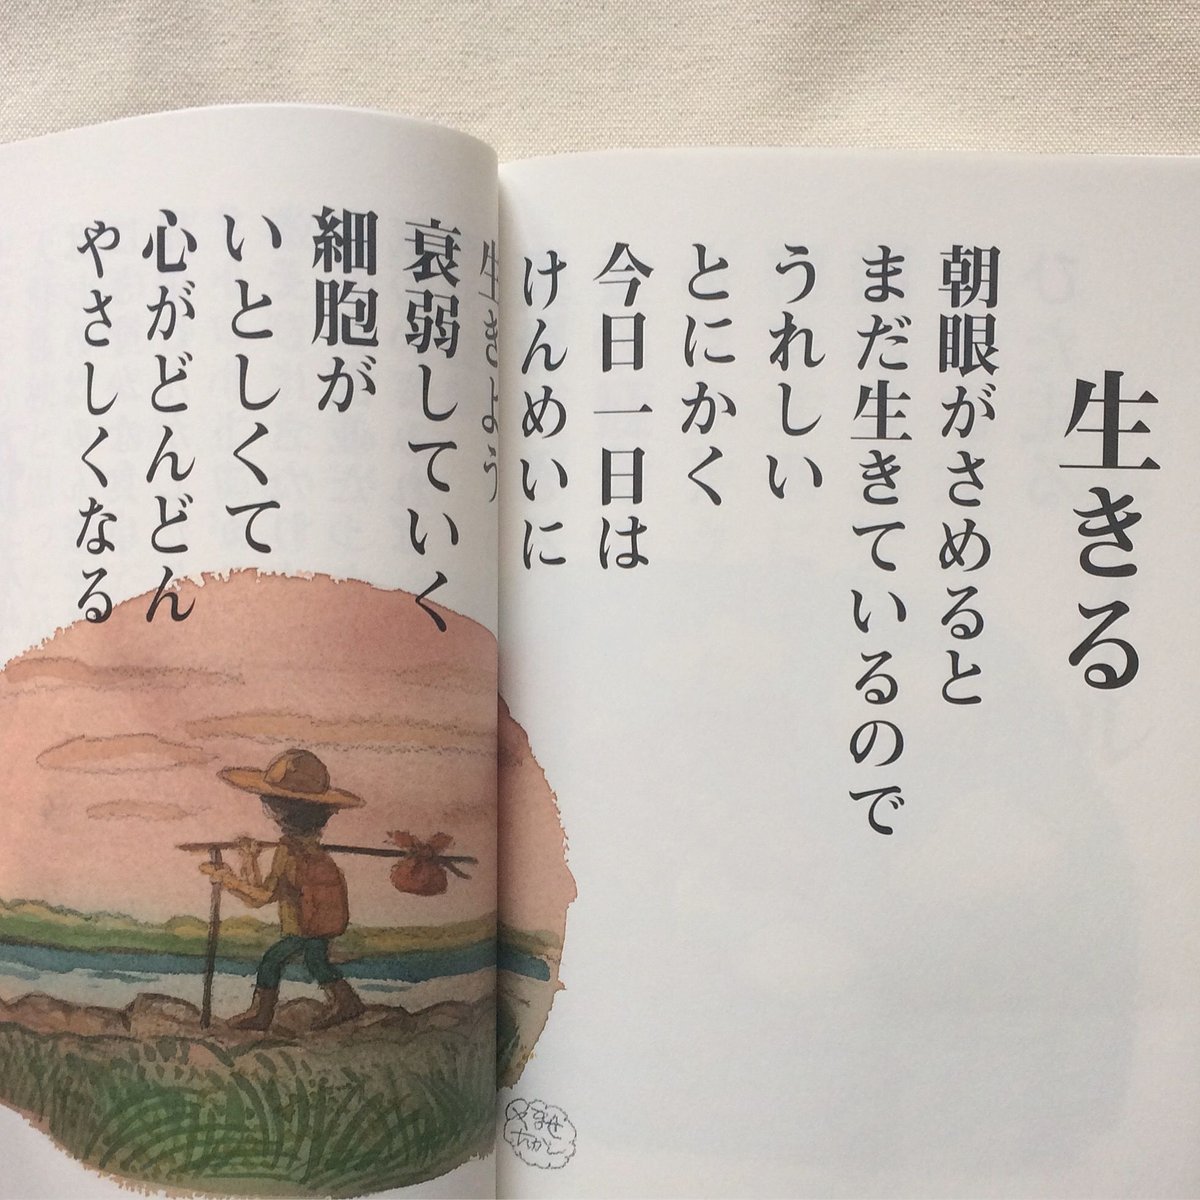 生きる
朝眼がさめると
まだ生きているので
うれしい
とにかく
今日一日は
けんめいに
生きよう
衰弱していく
細胞が
いとしくて
心がどんどん
やさしくなる
やなせ
たかし